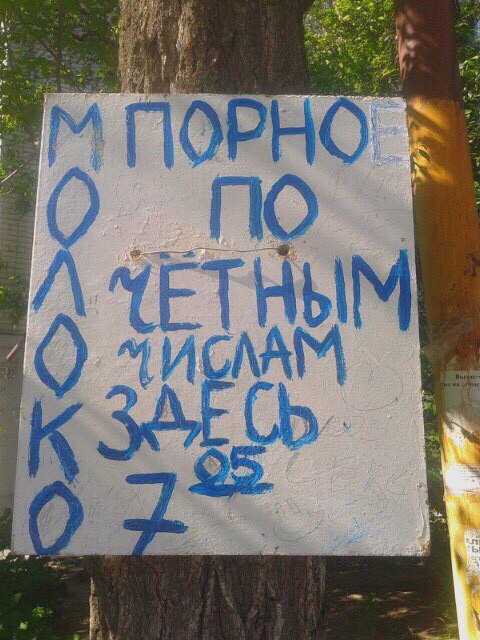 МОЛОКО
ПОРНОЕ
ПО
ЧЁТНЫМ
ЧИСЛАМ
ЗДЕСЬ
7 05